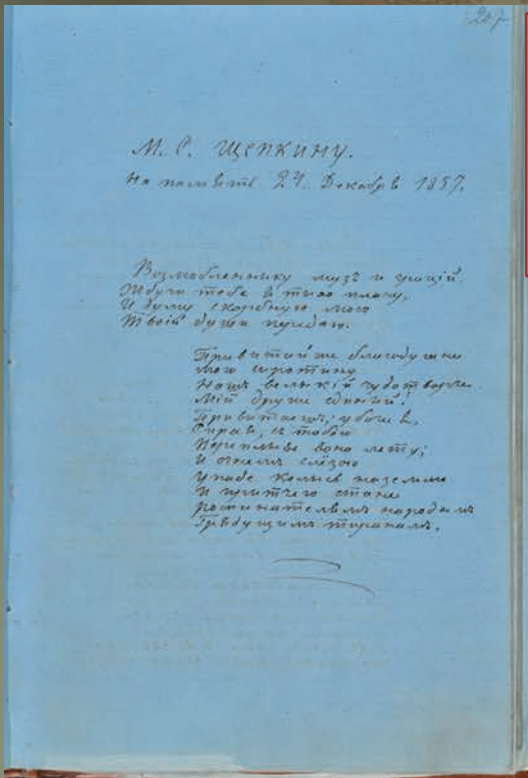 207
М. С. Щепкину.
На память 24. Декабря 1857.
Возлюбленыку музъ и грацій.
Ждучи тебе я тыхо плачу,
И думу скорбную мою
Твоій души передаю.
Привитай же благодушне
Мою сиротину
Нашъ велыкій чудотворче
Мій друже єдиный!
Привитаешъ; убогая,
Сирая, съ тобою
Переплыве вона лету;
И огнемъ слёзою
Упаде колысь на землю
И притчею стане
Роспинателямъ народнымъ
Грядущимъ тиранамъ.